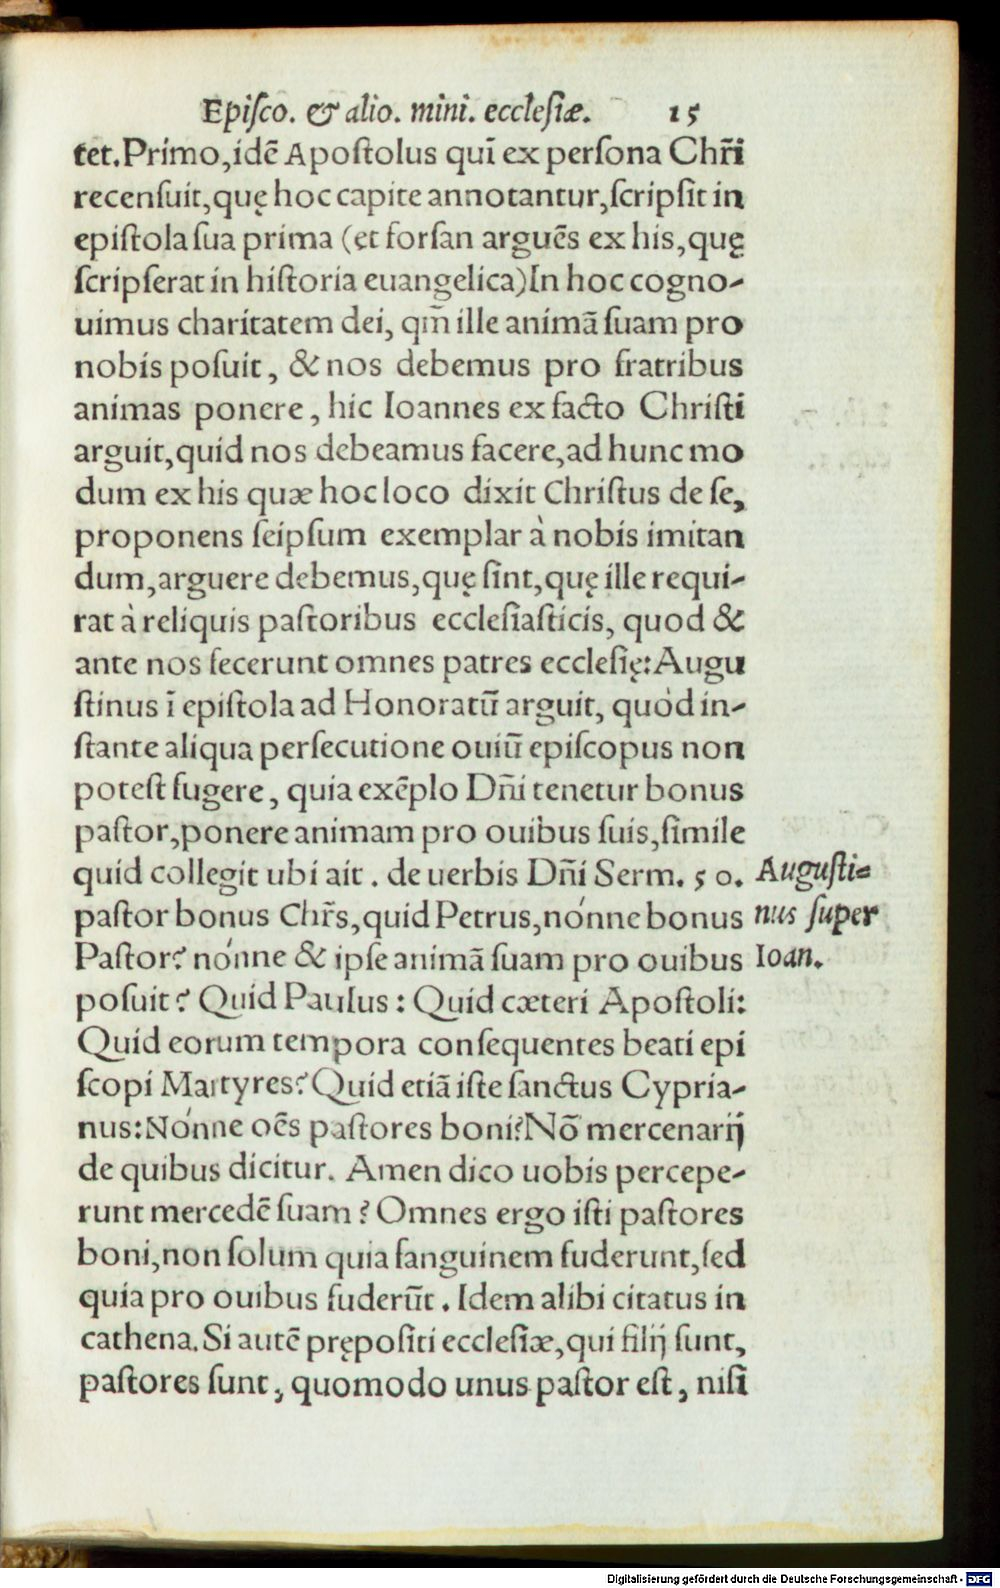 Episco. & alio. mini. ecclesiæ. 15
tet. Primo, idē Apostolus qui ex persona Chr̃i
recensuit, quę hoc capite annotantur, scripsit in
epistola sua prima (et forsan arguēs ex his, quę
scripserat in historia euangelica) In hoc cogno-
uimus charitatem dei, qm̃ ille animā suam pro
nobis posuit, & nos debemus pro fratribus
animas ponere, hic Ioannes ex facto Christi
arguit, quid nos debeamus facere, ad hunc mo
dum ex his quæ hoc loco dixit Christus de se,
proponens seipsum exemplar à nobis imitan
dum, arguere debemus, quę sint, quę ille requi-
rat à reliquis pastoribus ecclesiasticis, quod &
ante nos fecerunt omnes patres ecclesię: Augu
stinus ī epistola ad Honoratū arguit, quòd in-
stante aliqua persecutione ouiū episcopus non
potest fugere, quia exēplo Dñi tenetur bonus
pastor, ponere animam pro ouibus suis, simile
quid collegit ubi ait. de uerbis Dñi Serm. 50.
pastor bonus Chr̃s, quid Petrus, nónne bonus
Pastor? nónne & ipse animā suam pro ouibus
posuit? Quid Paulus: Quid cæteri Apostoli:
Quid eorum tempora consequentes beati epi
scopi Martyres? Quid etiā iste sanctus Cypria-
nus: Nónne oēs pastores boni? Nō mercenarij
de quibus dicitur. Amen dico uobis percepe-
runt mercedē suam? Omnes ergo isti pastores
boni, non solum quia sanguinem fuderunt, sed
quia pro ouibus fuderūt. Idem alibi citatus in
cathena. Si autē prępositi ecclesiæ, qui filij sunt,
pastores sunt, quomodo unus pastor est, nisi
Augusti-
nus super
Ioan.
Digitalisierung gefördert durch die Deutsche Forschungsgemeinschaft - DFG